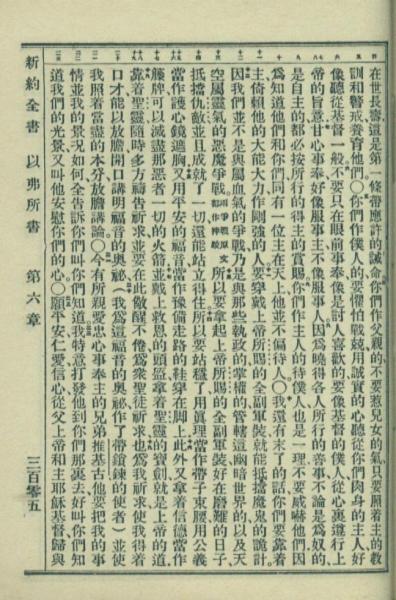 在世長壽這是第一條帶應許的誡命你們作父親的不要惹兒女的氣只要照着主的教
訓和警戒養育他們〇你們作僕人的要懼怕戰兢用誠實的心聽從你們肉身的主人好
像聽從基督一般不要只在眼前事奉像是討人喜歡的要像基督的僕人從心裏遵行上
帝的旨意甘心事奉好像服事主不像服事人因爲曉得各人所行的善事不論是爲奴的
是自主的都必按所行的得主的賞賜你們作主人的待僕人也是一理不要威嚇他們因
爲知道他們和你們同有一位主在天上他並不偏待人〇我還有末了的話你們要靠着
主倚賴他的大能大力作剛強的人要穿戴上帝所賜的全副軍裝就能抵擋魔鬼的詭計
因我們並不是與屬血氣的爭戰乃是與那些執政的掌權的管轄這幽暗世界的以及天
空屬靈氣的惡魔爭戰所以要拿起上帝所賜的全副軍裝好在磨難的日子
抵擋仇敵並且成就了一切還能站立得住所以要站穩了用眞理當作帶子束腰用公義
當作護心鏡遮胸又用平安的福音當作豫備走路的鞋穿在脚上此外又拿着信德當作
籐牌可以滅盡那惡者一切的火箭並戴上救恩的頭盔拿着聖靈的寶劍就是上帝的道
靠着聖靈隨時多方禱告祈求並要在此儆醒不倦爲衆聖徒祈求也爲我祈求使我得着
口才能以放膽開口講明福音的奧祕（我爲這福音的奧祕作了帶鎖鍊的使者）並使
我照着當盡的本分放膽講論〇今有所親愛忠心事奉主的兄弟推基古他要把我的事
情並我的景況如何全告訴你們叫你們知道我特意打發他到你們那裏去好叫你們知
道我們的光景又叫他安慰你們的心〇願平安仁愛信心從父上帝和主耶穌基督歸與
新約全書 以弗所書 第六章 三百零五